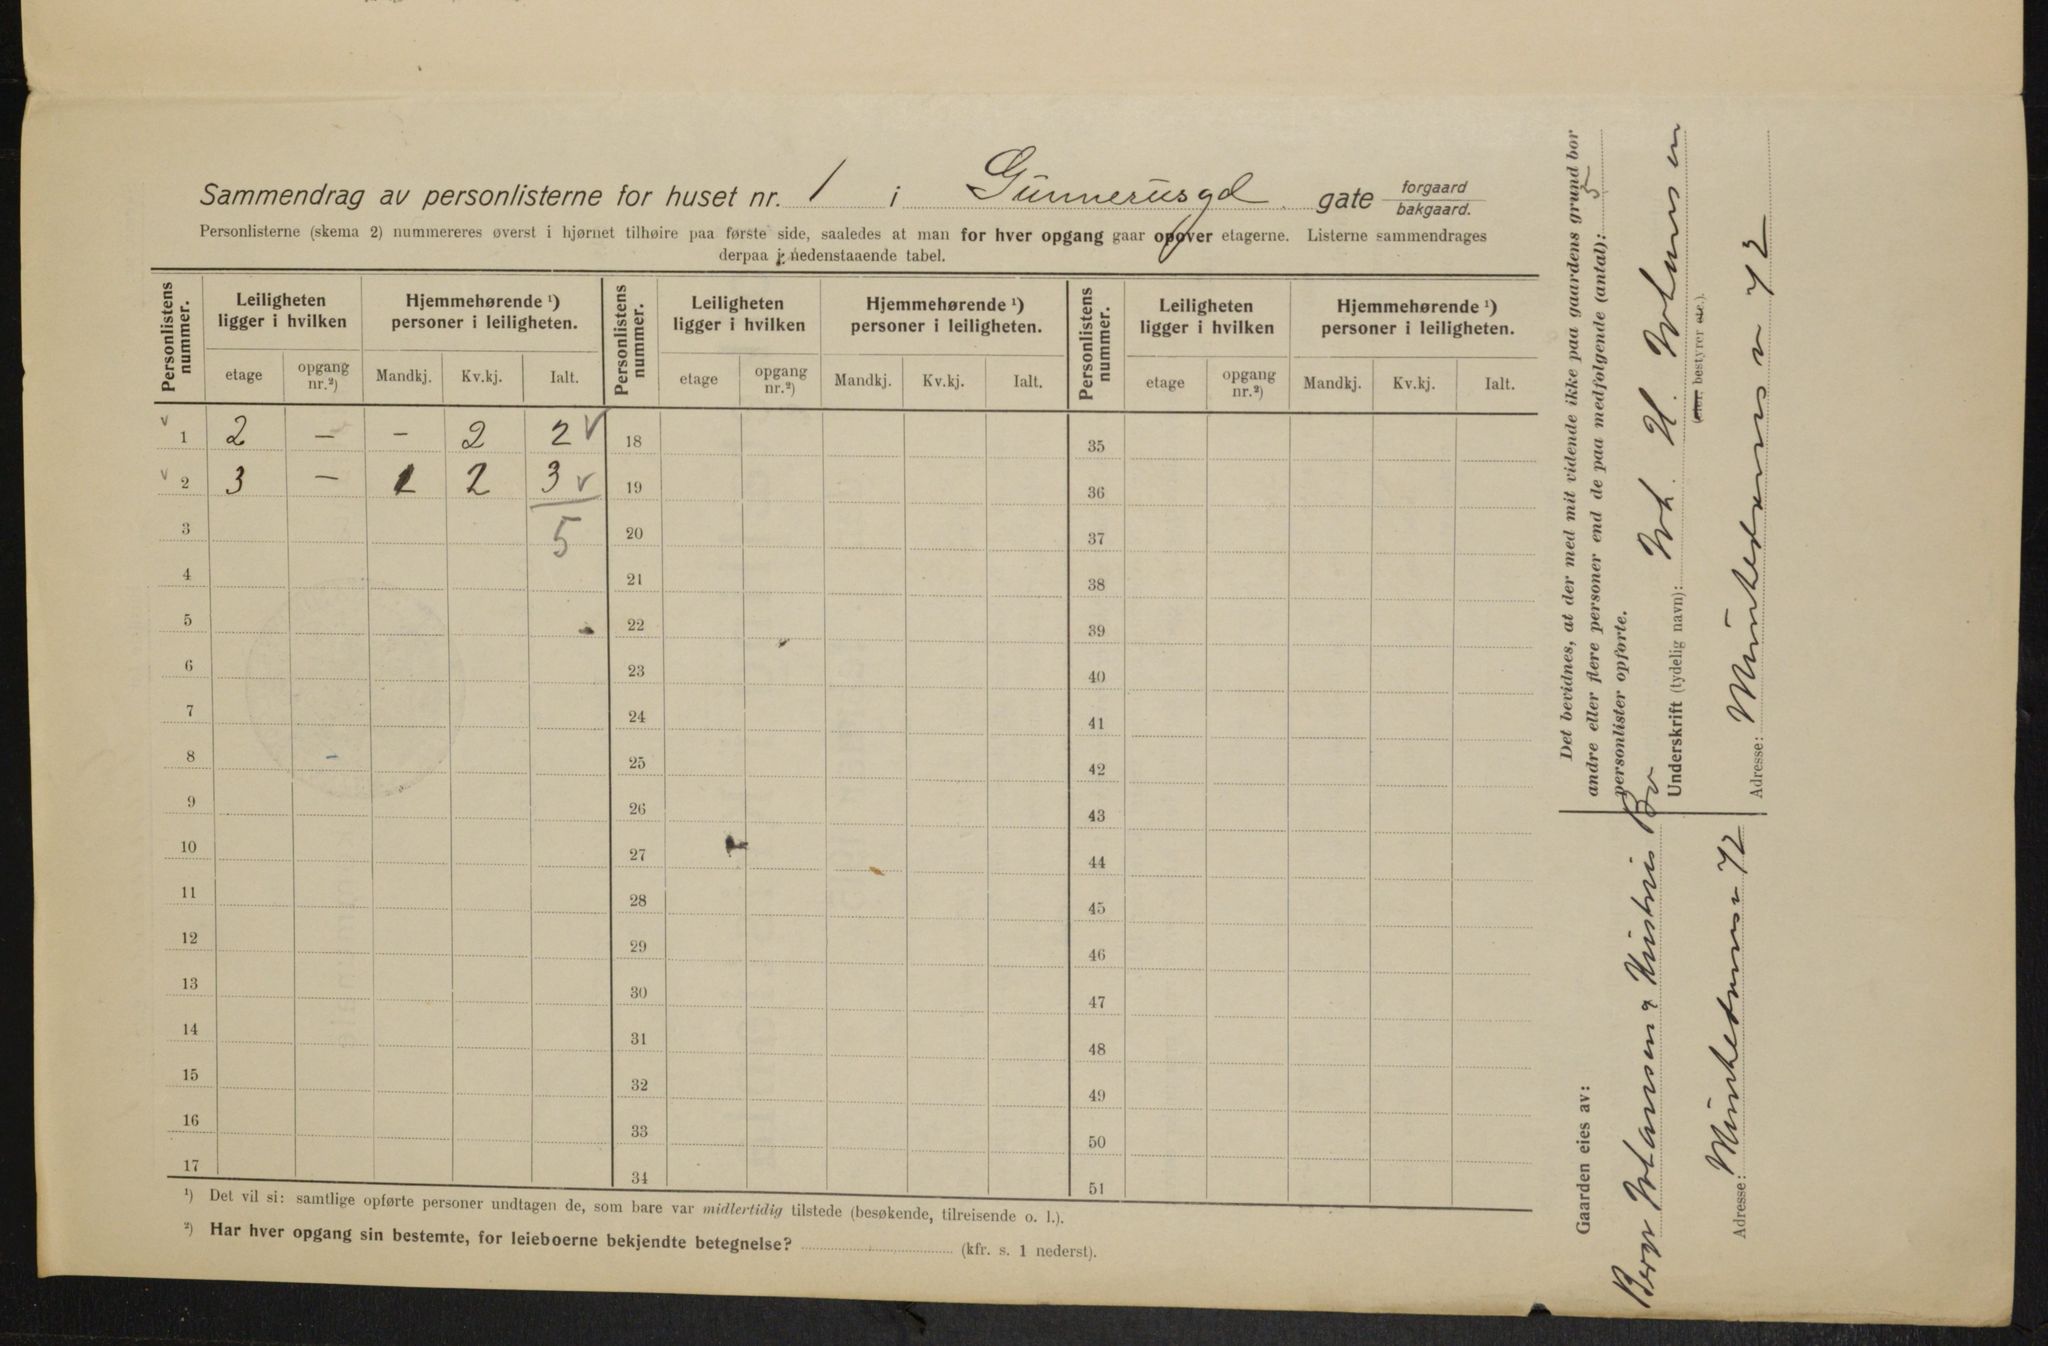 Sammendrag av personlisterne for huset nr. 1 i Gunnerusgd gate forgaard bakgaard.
Personlisterne (skema 2) nummereres øverst i hjørnet tilhøire paa første side, saaledes at man for hver opgang gaar opover etagerne. Listerne sammendrages
derpaa i nedenstaaende tabel.
Personlistens nummer. Leiligheten ligger i hvilken Hjemmehørende ¹) personer i leiligheten. Personlistens nummer. Leiligheten ligger i hvilken Hjemmehørende ¹) personer i leiligheten. Personlistens nummer. Leiligheten ligger i hvilken Hjemmehørende ¹) personer i leiligheten.
etage opgang nr.²) Mandkj. Kv.kj. Ialt. etage opgang nr.²) Mandkj. Kv.kj. Ialt. etage opgang nr.²) Mandkj. Kv.kj. Ialt.
1 2 — - 2 2 18 35
2 3 — 1 2 3 19 36
3 5 20 37
4 21 38
5 22 39
6 23 40
7 24 41
8 25 42
9 26 43
10 27 44
11 28 45
12 29 46
13 30 47
14 31 48
15 32 49
16 33 50
17 34 51
¹) Det vil si: samtlige opførte personer undtagen de, som bare var midlertidig tilstede (besøkende, tilreisende o. l.).
²) Har hver opgang sin bestemte, for leieboerne bekjendte betegnelse? (kfr. s. 1 nederst).
Det bevidnes, at der med mit vidende ikke paa gaardens grund bor
andre eller flere personer end de paa medfølgende (antal): 5
personlister opførte.
Underskrift (tydelig navn):
(eier, bestyrer etc.).
Adresse: Munkedamsv 72
Gaarden eies av:
Adresse: Munkedamsv 72